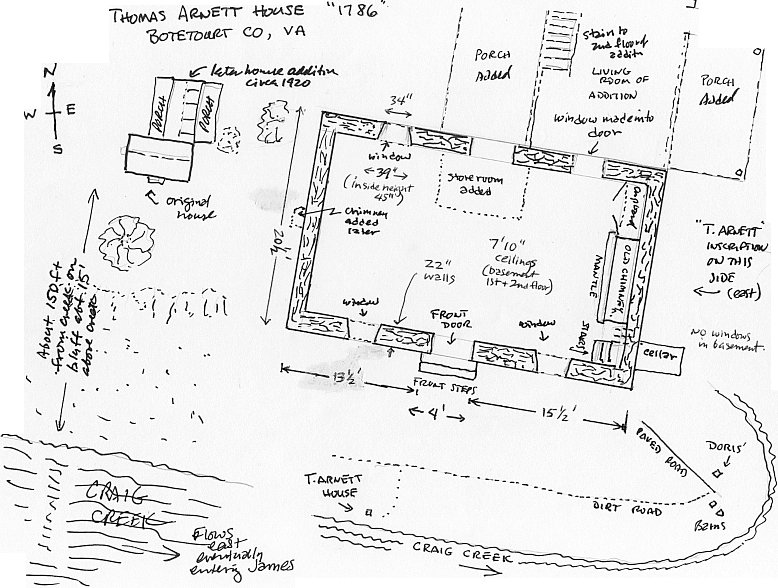 THOMAS ARNETT HOUSE "1786"
BOTETOURT CO, VA
N
W
E
S
later house addition
circa 1920
PORCH
PORCH
original
house
About 150 ft
from creek on
bluff abt. 15'
above creek
34"
window
39"
(inside height
45")
chimney
added
later
20½'
Store room
added
PORCH
Added
Stair to
2nd floor of
addit
LIVING
ROOM OF
ADDITION
window made into
door
PORCH
Added
Cupboard
MANTLE
OLD CHIMNEY
"T. ARNETT"
INSCRIPTION
ON THIS
SIDE
(east)
NO windows
in basement
7'10"
ceilings
(basement
1st + 2nd floor)
22"
walls
window
FRONT
DOOR
window
STAIRS
Cellar
FRONT STEPS
13½'
4'
15½'
PAVED ROAD
DORIS'
Barns
DIRT ROAD
T. ARNETT
HOUSE
CRAIG CREEK
CRAIG
CREEK
Flows
east
eventually
entering James